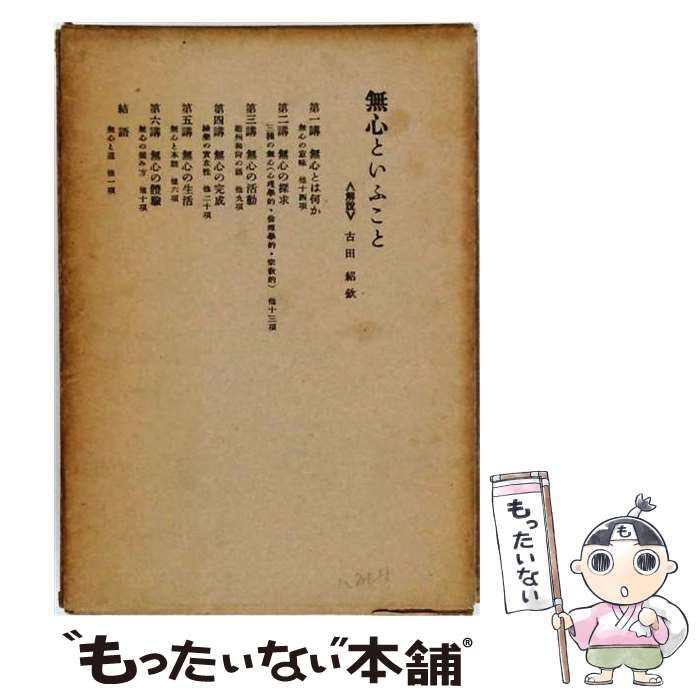 無心といふこと
<解説> 古田紹欽
第一講 無心とは何か
無心の意味 他十四項
第二講 無心の探求
三種の無心(心理學的・倫理學的・宗教的) 他十三項
第三講 無心の活動
趙州和尚の話 他九項
第四講 無心の完成
他二十項
第五講 無心の生活
無心と本能 他六項
第六講 無心の體驗
無心の掴み方 他十項
結語
無心と道 他一項
もったいない
も
"もったいない本舗®